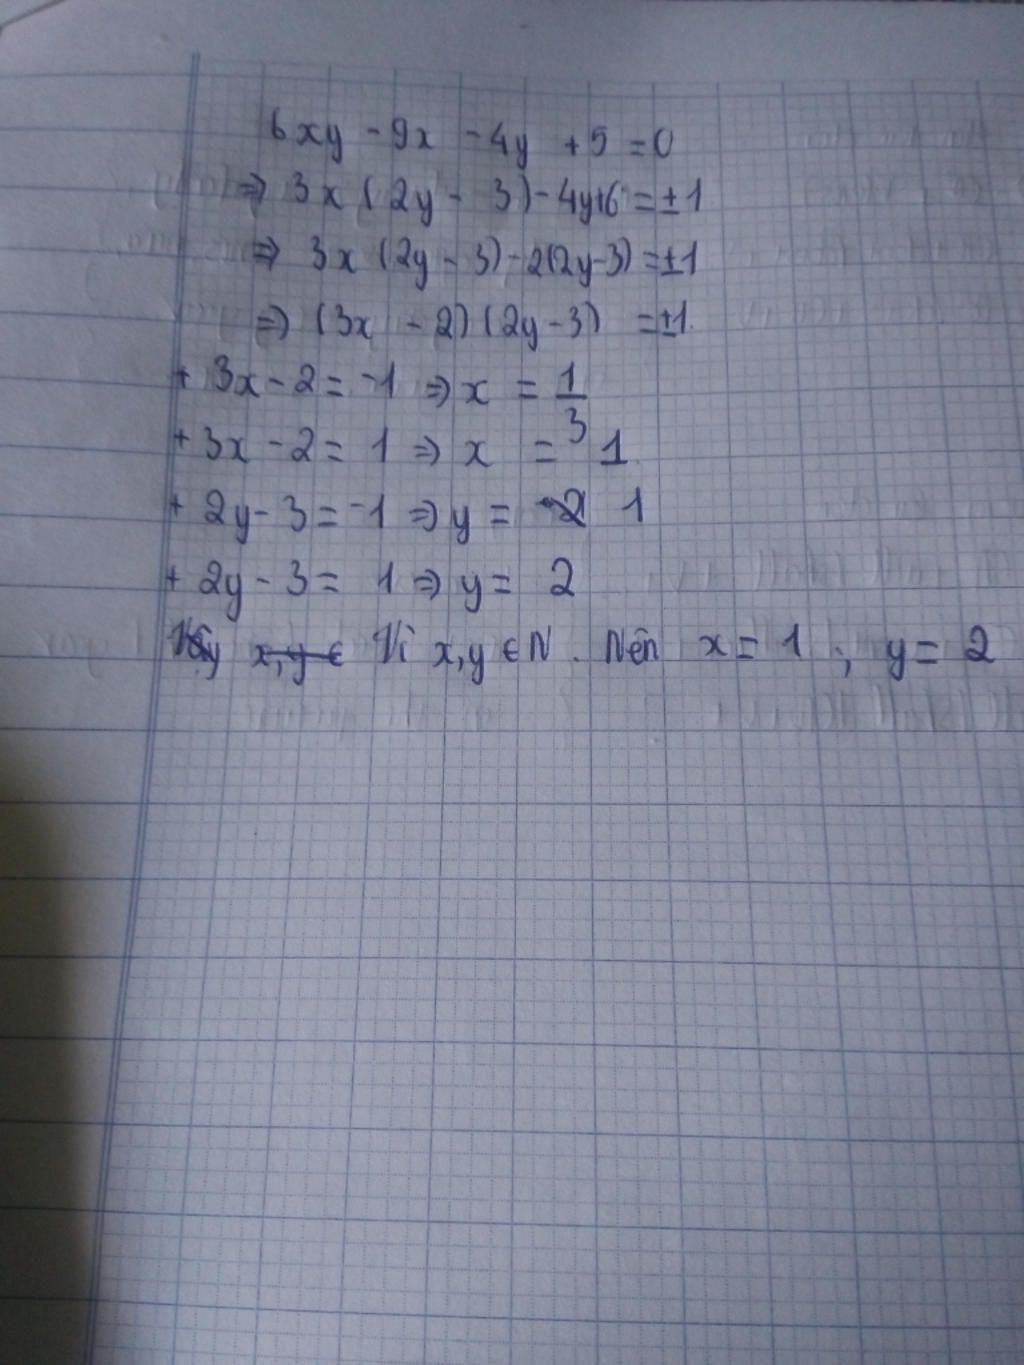 6xy - 9x - 4y + 5 = 0
⇒ 3x (2y - 3) - 4y+6 = ± 1
⇒ 3x (2y - 3) - 2(2y-3) = ±1
⇒ (3x - 2) (2y - 3) = ±1.
+ 3x - 2 = -1 ⇒ x = 1/3
+ 3x - 2 = 1 ⇒ x = 1
+ 2y - 3 = -1 ⇒ y = 1
+ 2y - 3 = 1 ⇒ y = 2
Vậy x, y ∈ Vì x, y ∈ N. Nên x = 1 ; y = 2